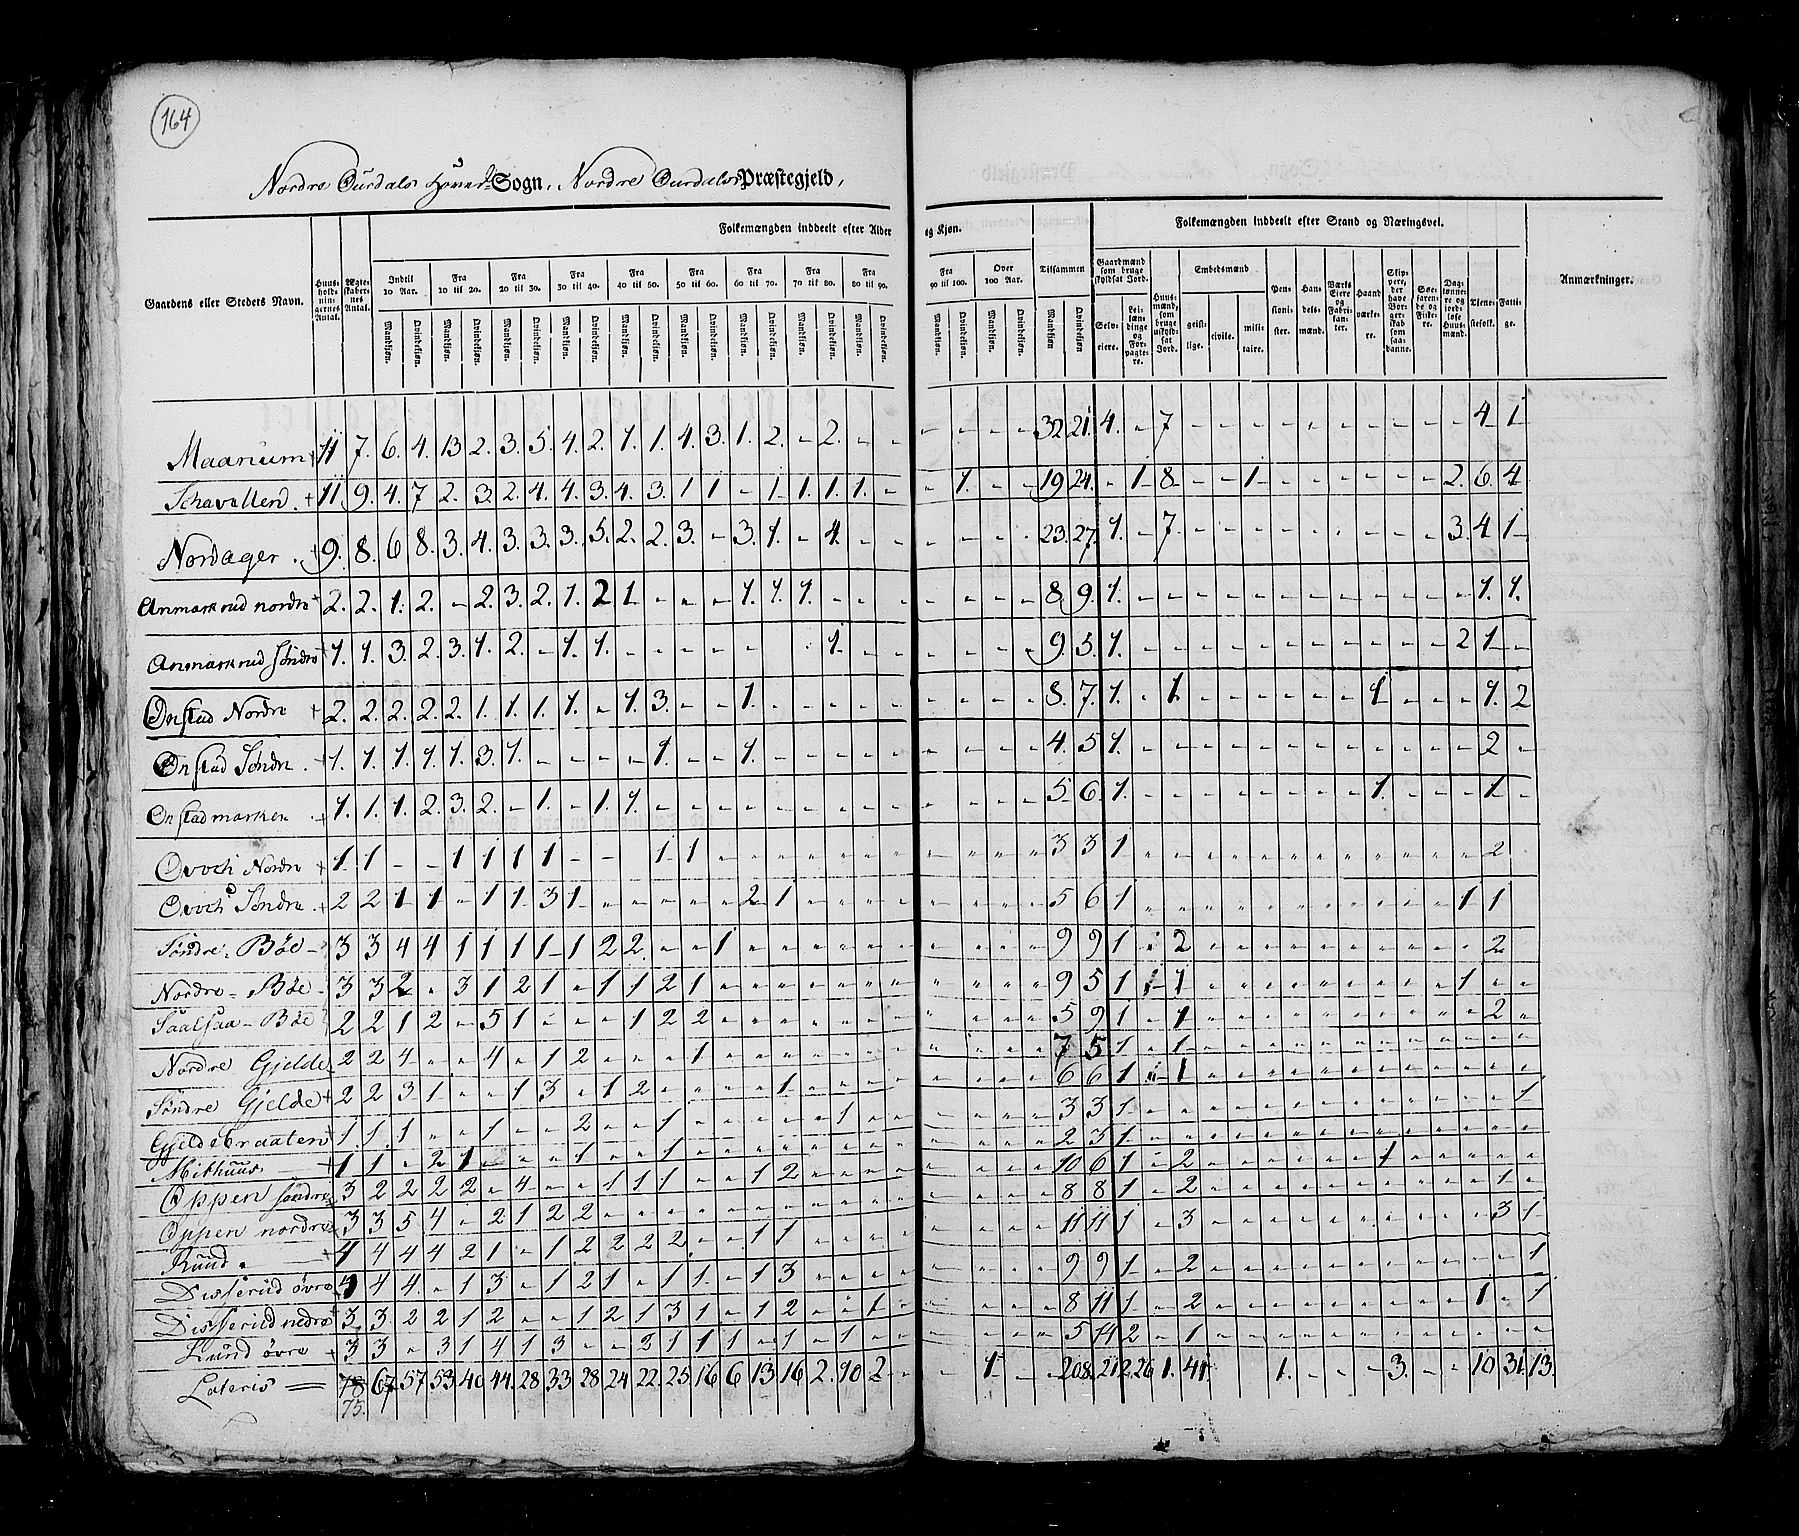 164
Nordre Ourdals Hoved Sogn, Nordre Ourdals Præstegjeld,
Folkemængden inddeelt efter Alder og Kjøn. Folkemængden inddeelt efter Stand og Næringsvei.
Gaardens eller Stedets Navn. Huus-holdnin-gernes Antal. Ægte-skaber-nes Antal. Indtil 10 Aar. Fra 10 til 20. Fra 20 til 30. Fra 30 til 40. Fra 40 til 50. Fra 50 til 60. Fra 60 til 70. Fra 70 til 80. Fra 80 til 90. Fra 90 til 100. Over 100 Aar. Tilsammen Gaardmænd som bruge skyldsat Jord. Huus-mænd, som bruge uskyld-sat Jord. Embedsmænd Pen-sioni-ster. Han-dels-mænd. Værks Eiere og Fabri-kan-ter. Haand værke-re. Skip-pere, der have Bor-ger-skab som saa-danne. Søe-faren-de og Fiske-re. Dag-lønne-re og jord-løse Huus-mænd. Tjene-stefolk. Fatti-ge. Anmærkninger.
Mandkjøn. Qvindekjøn. Selv-eiere. Lei-læn-dinge og For-pagte-re. geist-lige. civile. mili-taire.
Maarium 11 7. 6. 4. 13 2. 3. 5. 4. 2. 1. 1. 4. 3. 1. 2. - 2. - - - - - - 32 21. 4. - 7 - - - - - - - - - - 4 1
Schavellen 11. 9. 4. 7 2. 3. 2. 4. 4. 3. 4. 3. 1 1 - 1. 1. 1. 1. - - 1. - - 19 24. - 1 8 - - 1 - - - - - - 2. 6. 4
Nordager 9. 8. 6 8. 3. 4. 3. 3. 3. 5. 2. 2. 3. - 3. 1. - 4. - - - - - - 23. 27. 1. - 7. - - - - - - - - - 3. 4 1
Anmarkrud nordre 2. 2. 1. 2. - 2. 3. 2. 1. 2 1. - - - 1. 1. 1. - - - - - - - 8 9. 1. - - - - - - - - - - - - 1. 1.
Anmarkrud Søndre 1. 1. 3. 2. 3. 1. 2. - 1. 1. - - - - - 1. - - 9. 5. 1. - - - - - - - - - - - 2 1. -
Onstad Nordre 2. 2. 2. 2. 2. 1. 1. 1. 1. - 1. 3. - - 1. - - - - - - - - - 8. 7. 1. - 1 - - - - - - 1 - - - 1. 2
Onstad Søndre 1. 1. 1. 1. 1. 3. 1. - - - - 1. - - 1. - - - - - - - - - 4. 5 1. - - - - - - - - - - - - 2 -
Onstadmarken 1. 1. 1. 2. 3. 2. - 1. - 1. 1. - - - - - - - - - - - - - 5. 6. 1. - - - - - - - - 1. - - - 1. -
Nordre 1. 1 - - 1 1 1 1 - - 1 1 - - - - - - - - - - 3 3 1 - - - - - - - - - - - - 2
Søndre 2 2 1 1 - 1 1 3 1 - - - - - 2 1 - - - - - - - - 5 6 1 - - - - - - - - - - - 1 1
Søndre Bøe 3 3 4 4 1 1 1 1 1 2 2. - - 1 - - - - - - - - - - 9 9 1 - 2 - - - - - - - - - - 2
Nordre Bøe 3 3 2 - 3 1 2 1 - 1 1 2 1 - - - - - - - - - - - 9 5 1 1 1 - - - - - - - - - 1 - -
Bøe 2 2 1 2 - 5 1 - - - 1 2 2 - - - - - - - - - - - 5 9 1 - 1 - - - - - - - - - - 2 -
Nordre Gjelde 2 2 4 - - 4 - 1 2 - - - 1 - - - - - - - - - - - 7 5 1 - 1 - - - - - - - - - - - -
Søndre Gjelde 2 2 3 1 - - 1 3 - 1 2 - - - - 1 - - - - - - - - 6 6 1 - 1 - - - - - - - - - - - -
Gjeldebraaten 1. 1. 1 - - 1 - - 2 - - 1 - - - - - 1 - - - - - - 3 3 1 - - - - - - - - - - - - - 1
Mithuus 1 1 - 2 1 - - - 1 - - 1 - - - - - - - - - - - - 2 3 1 - - - - - - - - - - - - - -
Oppen søndre 3 2 2 2 2 - 4 - - 1 1 1 - - 1 2 - - - - - - - - 10 6 1 - 2 - - - - - - 1 - - - - -
Oppen nordre 3 3 5 4 - 2 1 2 2 - - - - - - - - - - - - - - - 8 8 1 - 2 - - - - - - - - - - 1 -
Ruud 4 4 4 4 2 1 - 1 2 2 2 2 - - 1 1 - - - - - - - - 11 11 1 - 3 - - - - - - - - - - 3 1
Disserud øvre 4 4 4 - 1 3 - 1 2 1 - 1 1 - 1 3 - - - - - - - - 9 9 1 - 2 - - - - - - - - - - - 1
Disserud nedre 3 3 2 2 1 2 - - 1 2 1 3 1 - 1 2 - - 1 - - - - - 8 11 1 - 2 - - - - - - - - - - 1 - 1
Lund øvre 3 3 - 3 1 4 1 3 - - 2 1 1 1 - 1 - 1 - - - - - - 5 14 2 - 1 - - - - - - - - - - - -
Lateris 78 67 57 53 40 44. 28 33 28 24 22. 25 16 6 13 16 2. 10 2 - - 1 - - 208. 212. 26 1. 41. 1. - - 3. - - 10 31. 13.
75.